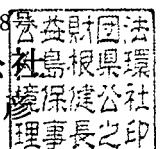 8
社
彦
公益財団法
島根県環
境保健公社
理事長之印